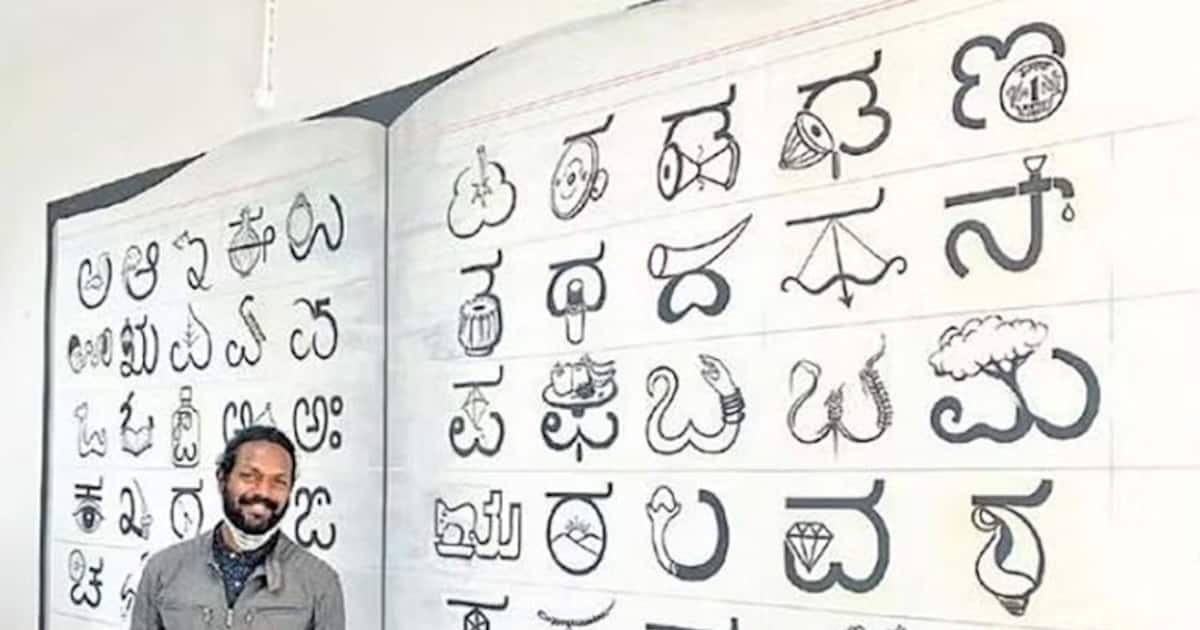 ಅ ಆ ಇ ಈ ಉ
ಊ ಋ ಎ ಏ ಐ
ಒ ಓ ಔ ಅ ಅಃ
ಕ ಖ ಗ ಙ
ಚ
ಟ ಠ ಡ ಢ ಣ
ತ ಥ ದ ಧ ನ
ಪ ಫ ಬ ಭ ಮ
ಯ ರ ಲ ವ ಶ